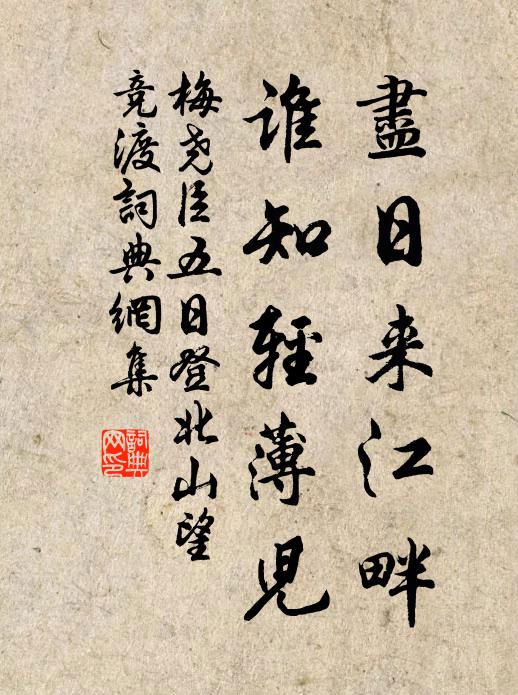 盡日来江畔
誰知輕薄兒
梅堯臣五日登北山望
竞渡詞典網集
詞典网印